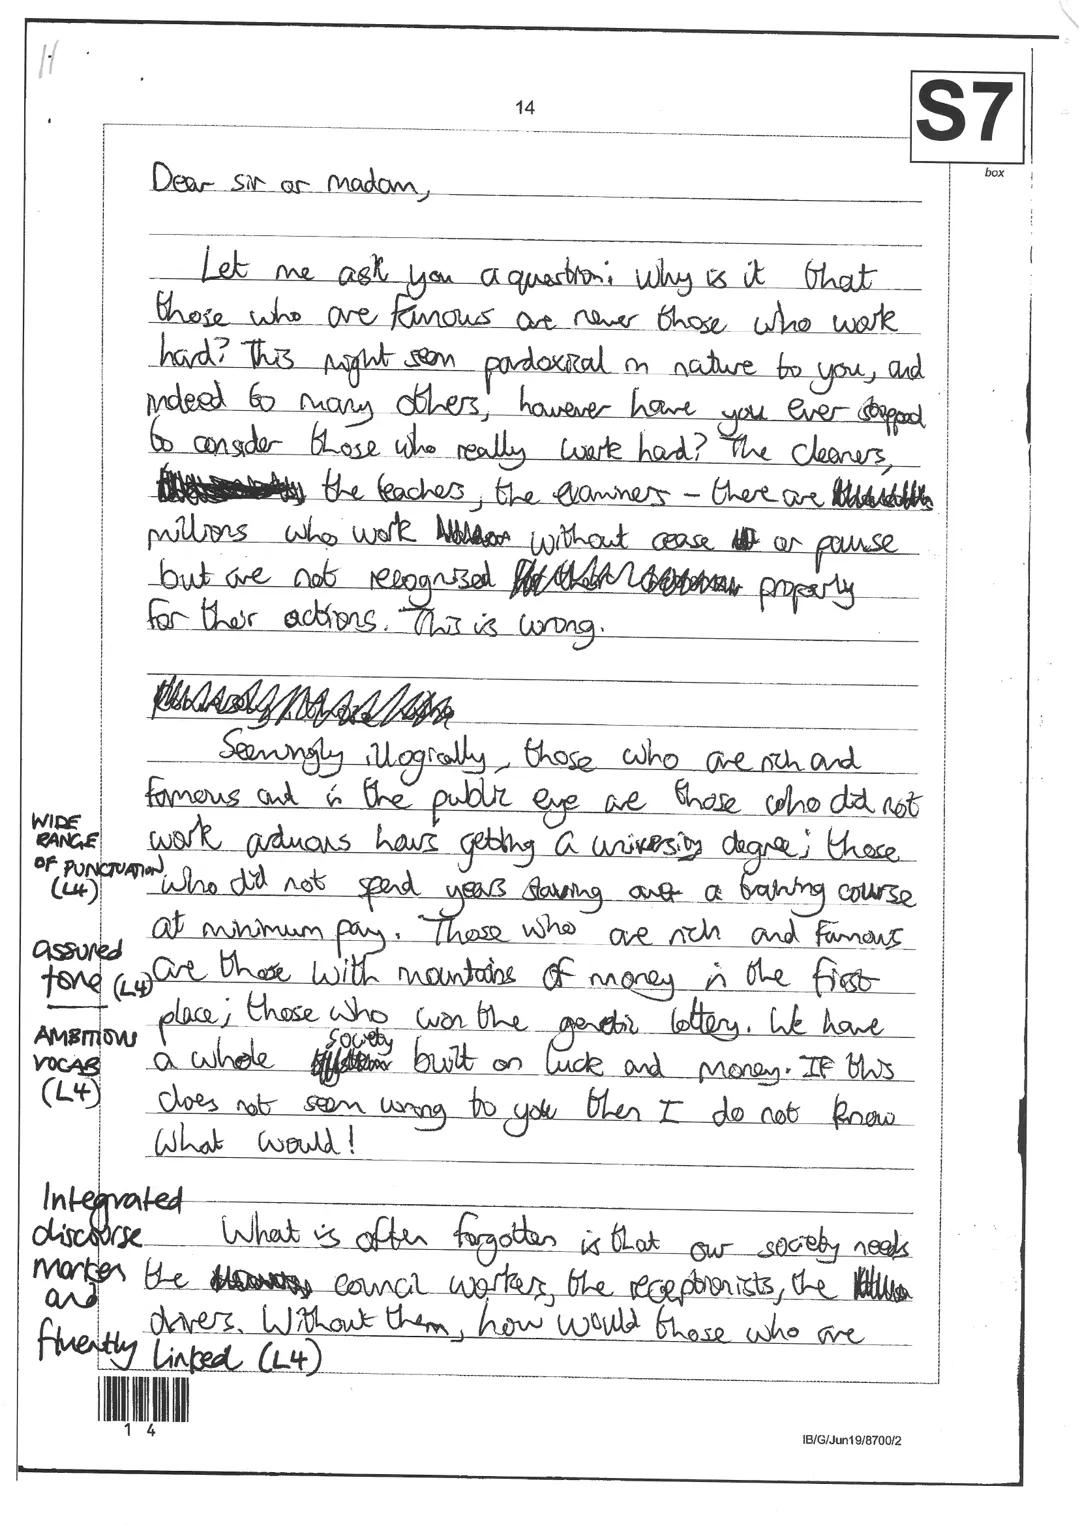 H
14
S7
box
Dear sir or madam,
Let me ask you a question: why is it that
those who are famous are never those who work
hard? This might seem pardoxical in nature to you, and
indeed to many others, however have you ever stopped
to consider those who really work hard? The cleaners,
the teachers, the examiners – there are
millions who work without cease or pause
but are not recognised properly
for their actions. This is wrong.
Seemingly illogically, those who are rich and
famous and in the public eye are those who did not
work arduous hours getting a university degree; those
who did not spend years slaving over a training course
at minimum pay. Those who are rich and famous
are those with mountains of money in the first
place; those who won the genetic lottery. We have
a whole society built on luck and money. If this
does not seem wrong to you then I do not know
what would!
What is often forgotten is that our society needs
the council workers, the receptionists, the
drivers. Without them, how would those who are
WIDE
RANGE
OF PUNCTUATION.
(L4)
assured
tone (L4)
AMBITIOUS
VOCAB
(L4)
Integrated
discourse
marker
and
fluently linked (L4)
1 4
IB/G/Jun19/8700/2